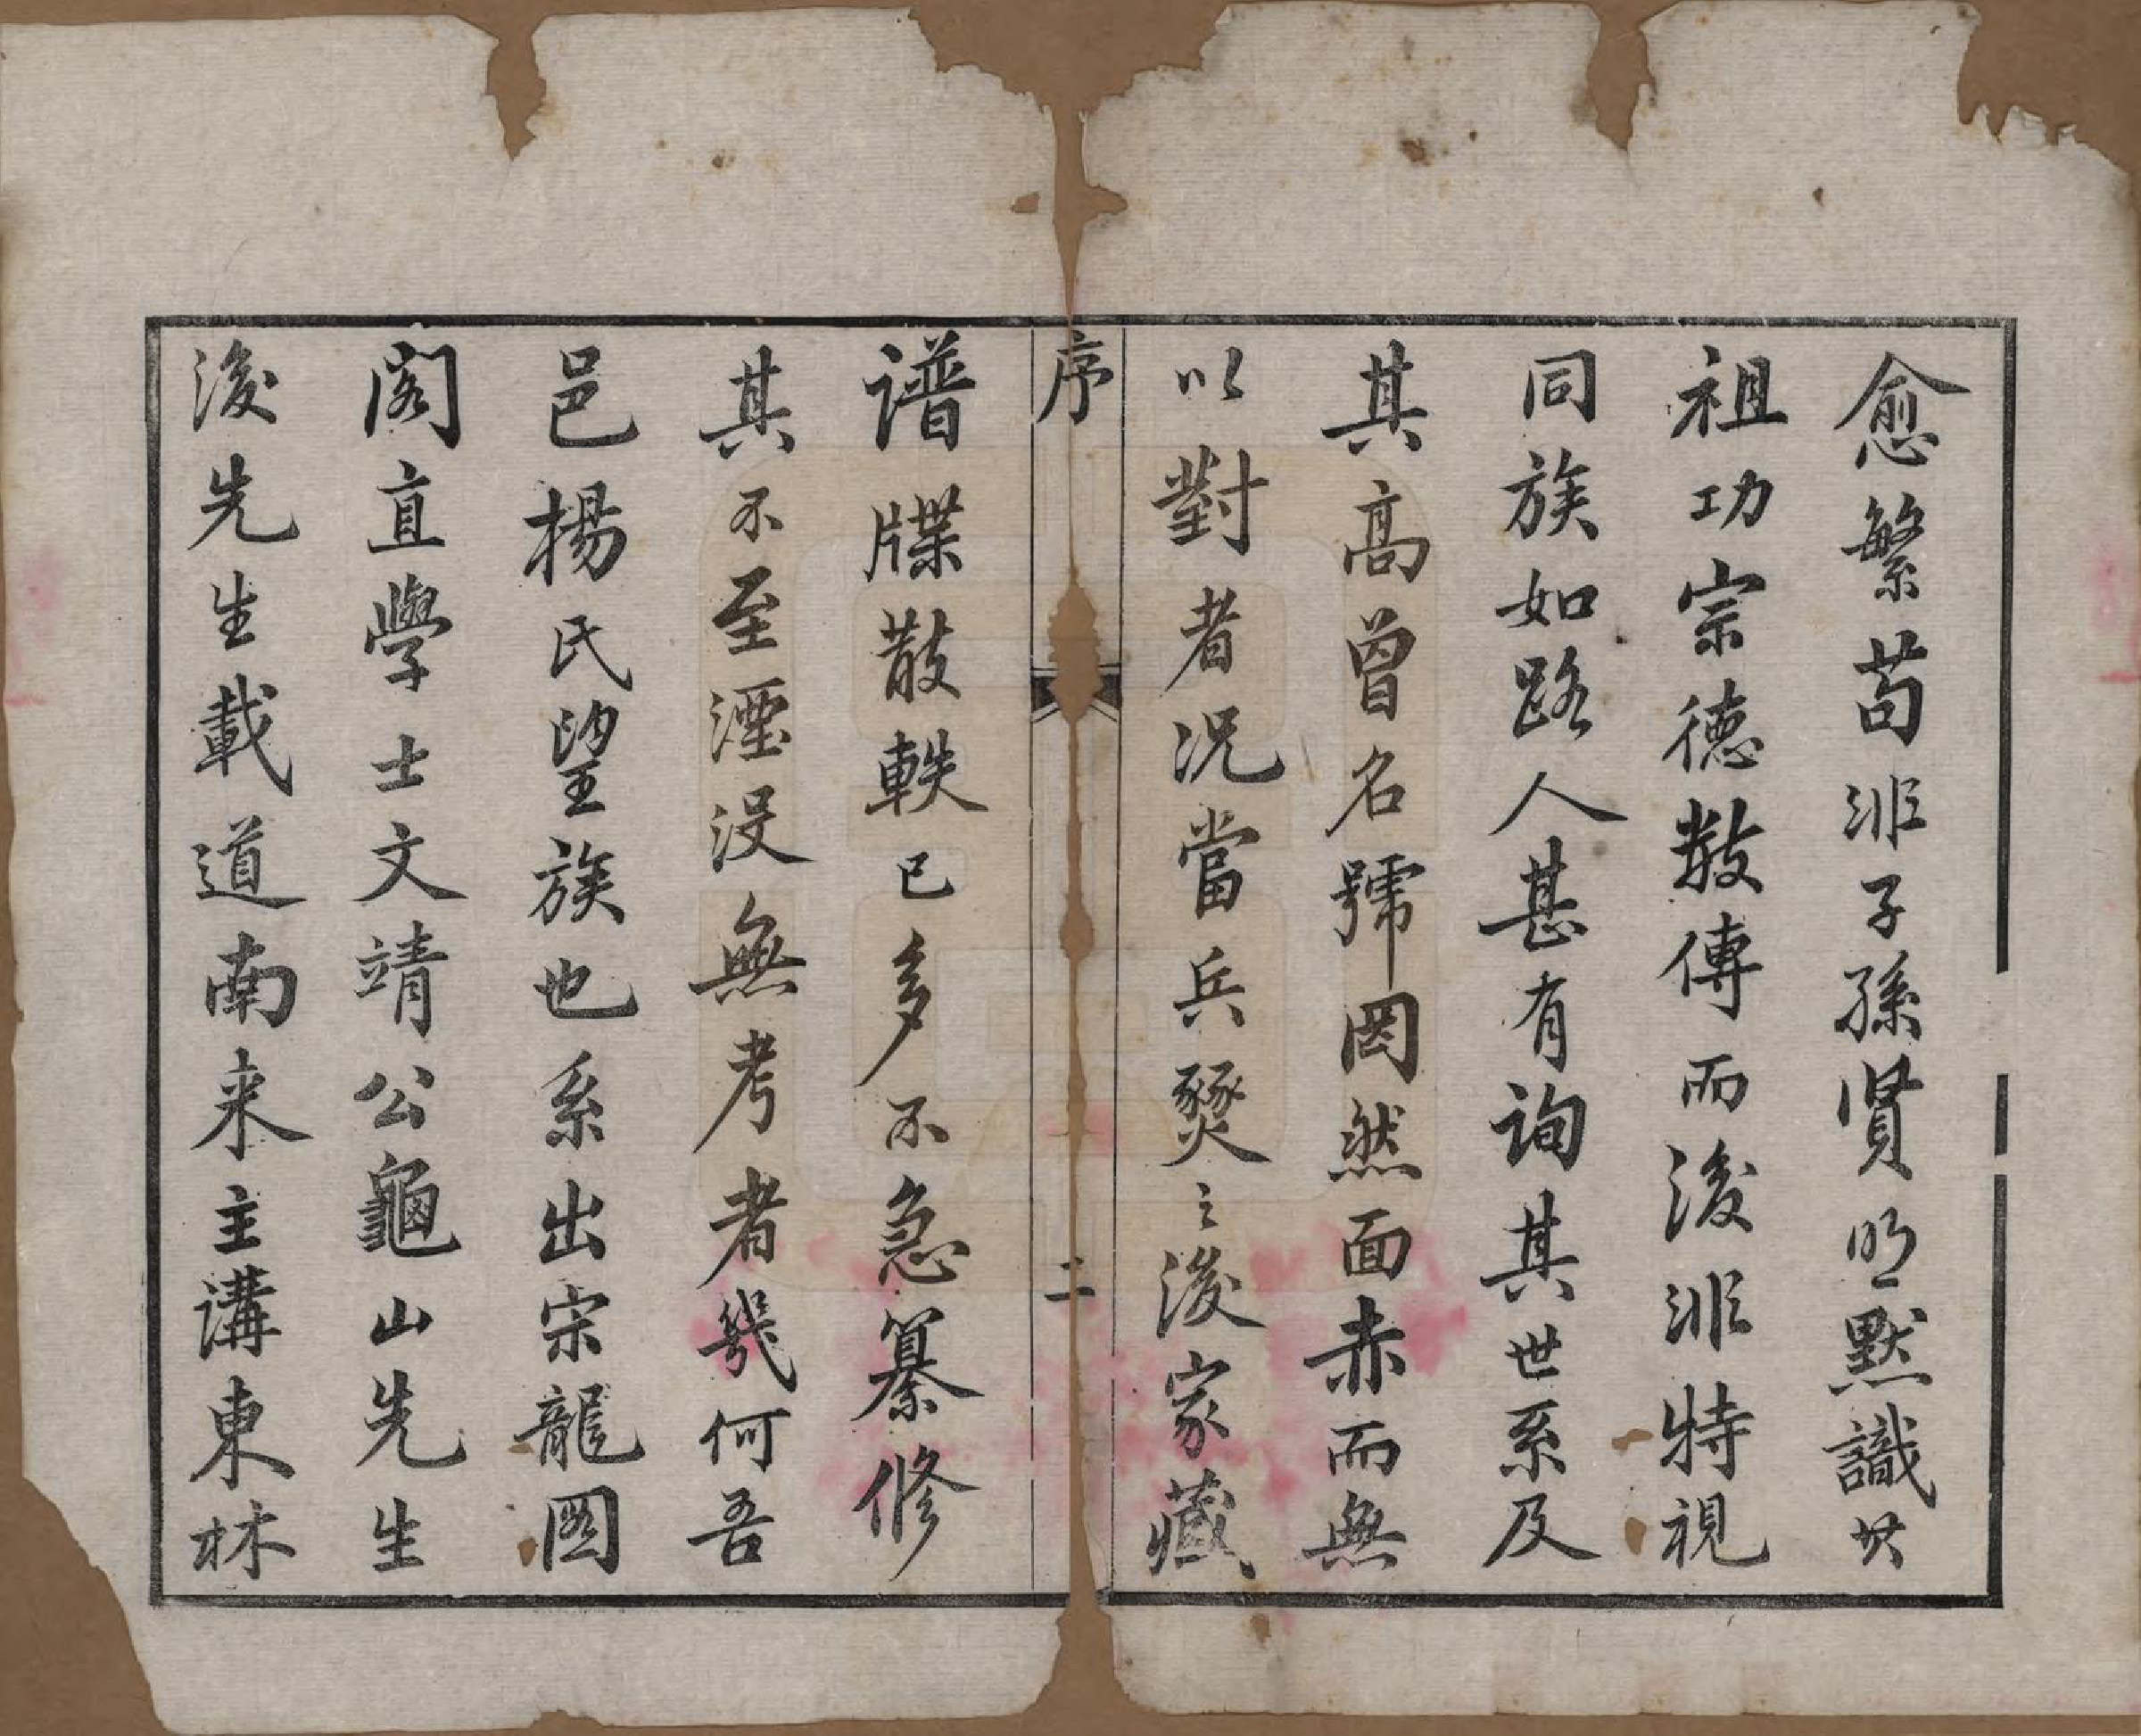 愈繁苟非子孫賢明默識其
祖功宗德数傳而後非特視
同族如路人甚有詢其世系及
其高曾名號罔然面赤而無
以對者況當兵燹之後家藏
序
二
谱牒散軼已多不急纂修
其不至湮没無考者幾何吾
邑楊氏望族也系出宗龍圖
閣直學士文靖公龜山先生
後先生載道南来主講東林